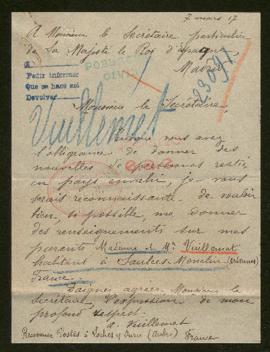 7 mars 17
A Monsieur le Secrétaire particulier
de Sa Majesté le Roi d'Espagne
Madrid
POBLACIÓN
CIVIL
A
Pedir informes
Que se hace así
Devolver
23.397
Monsieur le Secrétaire,
Vuillemet
vous avez
l'obligeance de donner des
nouvelles de personnes restées
en pays envahi, je vous
serais reconnaissante de vouloir
bien, si possible, me donner
des renseignements sur mes
parents Madame et Mr Vuillemet
habitant à Saulces-Monclin (Ardennes)
France.
Daignez agréer Monsieur le
Secrétaire, l'expression de mon
profond respect.
Vuillemet
Receveuse Postes à Loches s/ Ource (Aube) France